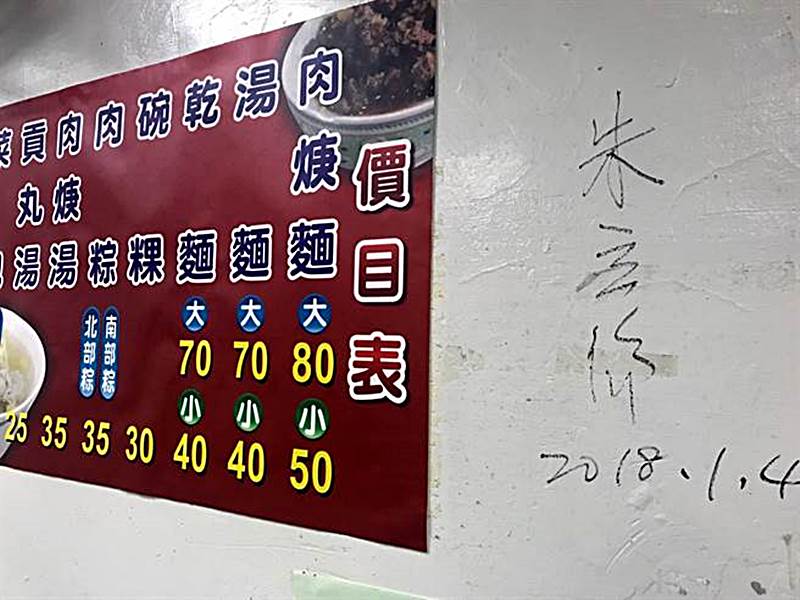 價目表
肉焿麵
大
80
小
50
湯麵
大
70
小
40
乾麵
大
70
小
40
碗粿
30
肉粽
南部粽
北部粽
35
肉焿湯
35
貢丸湯
25
朱立倫
2018.1.4